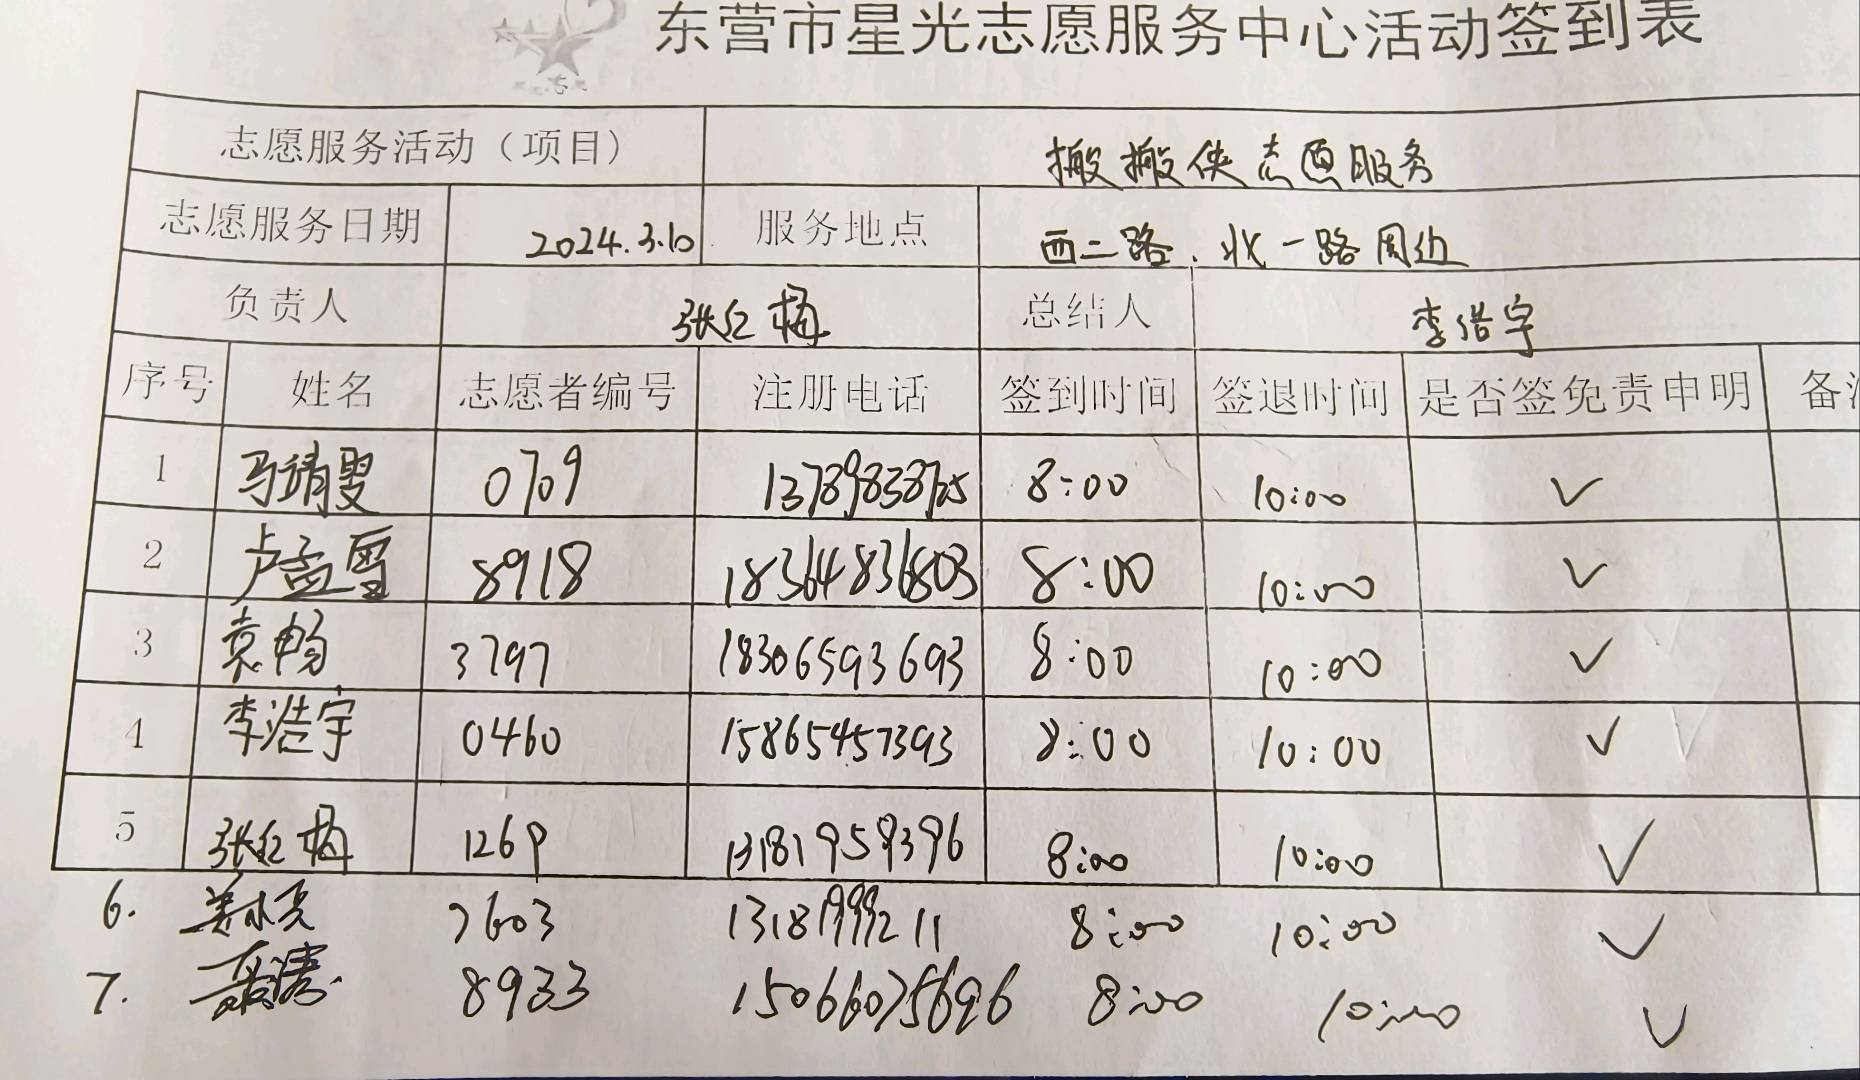 东营市星光志愿服务中心活动签到表
志愿服务活动（项目） 搬搬侠志愿服务
志愿服务日期 2024.3.10 服务地点 西二路、北一路周边
负责人 张红梅 总结人 李浩宇
序号 姓名 志愿者编号 注册电话 签到时间 签退时间 是否签免责申明 备注
1 马靖雯 0709 13789838725 8:00 10:00 ✓
2 卢孟雪 8918 18364836803 8:00 10:00 ✓
3 袁畅 3797 18306593693 8:00 10:00 ✓
4 李浩宇 0460 15865457393 8:00 10:00 ✓
5 张红梅 1269 13181959396 8:00 10:00 ✓
6. 7603 13181999211 8:00 10:00 ✓
7. 8933 15066075696 8:00 10:00 ✓